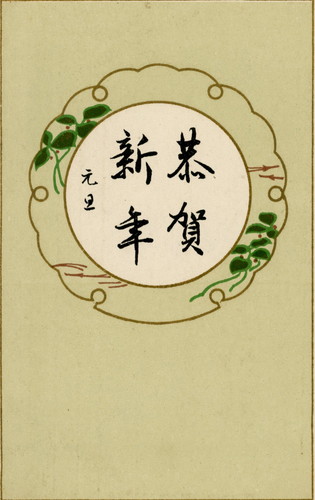 恭賀
新年
元旦